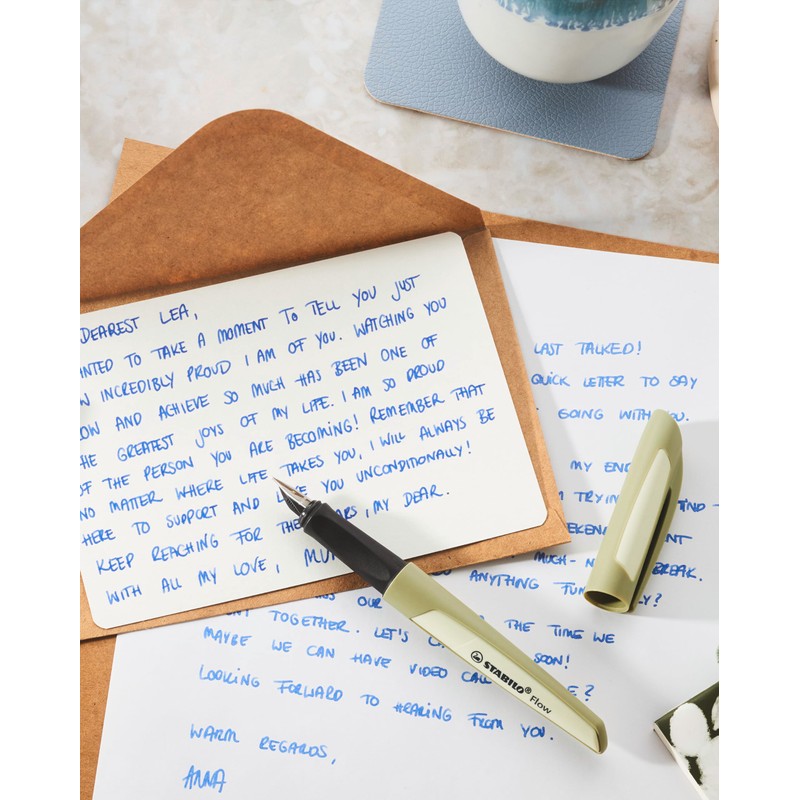 DEAREST LEA,
NTED TO TAKE A MOMENT TO TELL YOU JUST
W INCREDIBLY PROUD I AM OF YOU. WATCHING YOU
OW AND ACHIEVE SO MUCH HAS BEEN ONE OF
HE GREATEST JOYS OF MY LIFE. I AM SO PROUD
OF THE PERSON YOU ARE BECOMING! REMEMBER THAT
NO MATTER WHERE LIFE TAKES YOU, I WILL ALWAYS BE
HERE TO SUPPORT AND YOU UNCONDITIONALLY!
KEEP REACHING FOR THE ARS, MY DEAR.
WITH ALL MY LOVE, MU
LAST TALKED!
QUICK LETTER TO SAY
GOING WITH YOU.
MY EN
TRYIN
EKEN NT
MUCH-N BREAK.
ANYTHING FUN Y?
OUR
NT TOGETHER. LET'S THE TIME WE
MAYBE WE CAN HAVE VIDEO CAL SOON!
E?
LOOKING FORWARD TO HEARING FROM YOU.
WARM REGARDS,
ANNA
STABILO® Flow